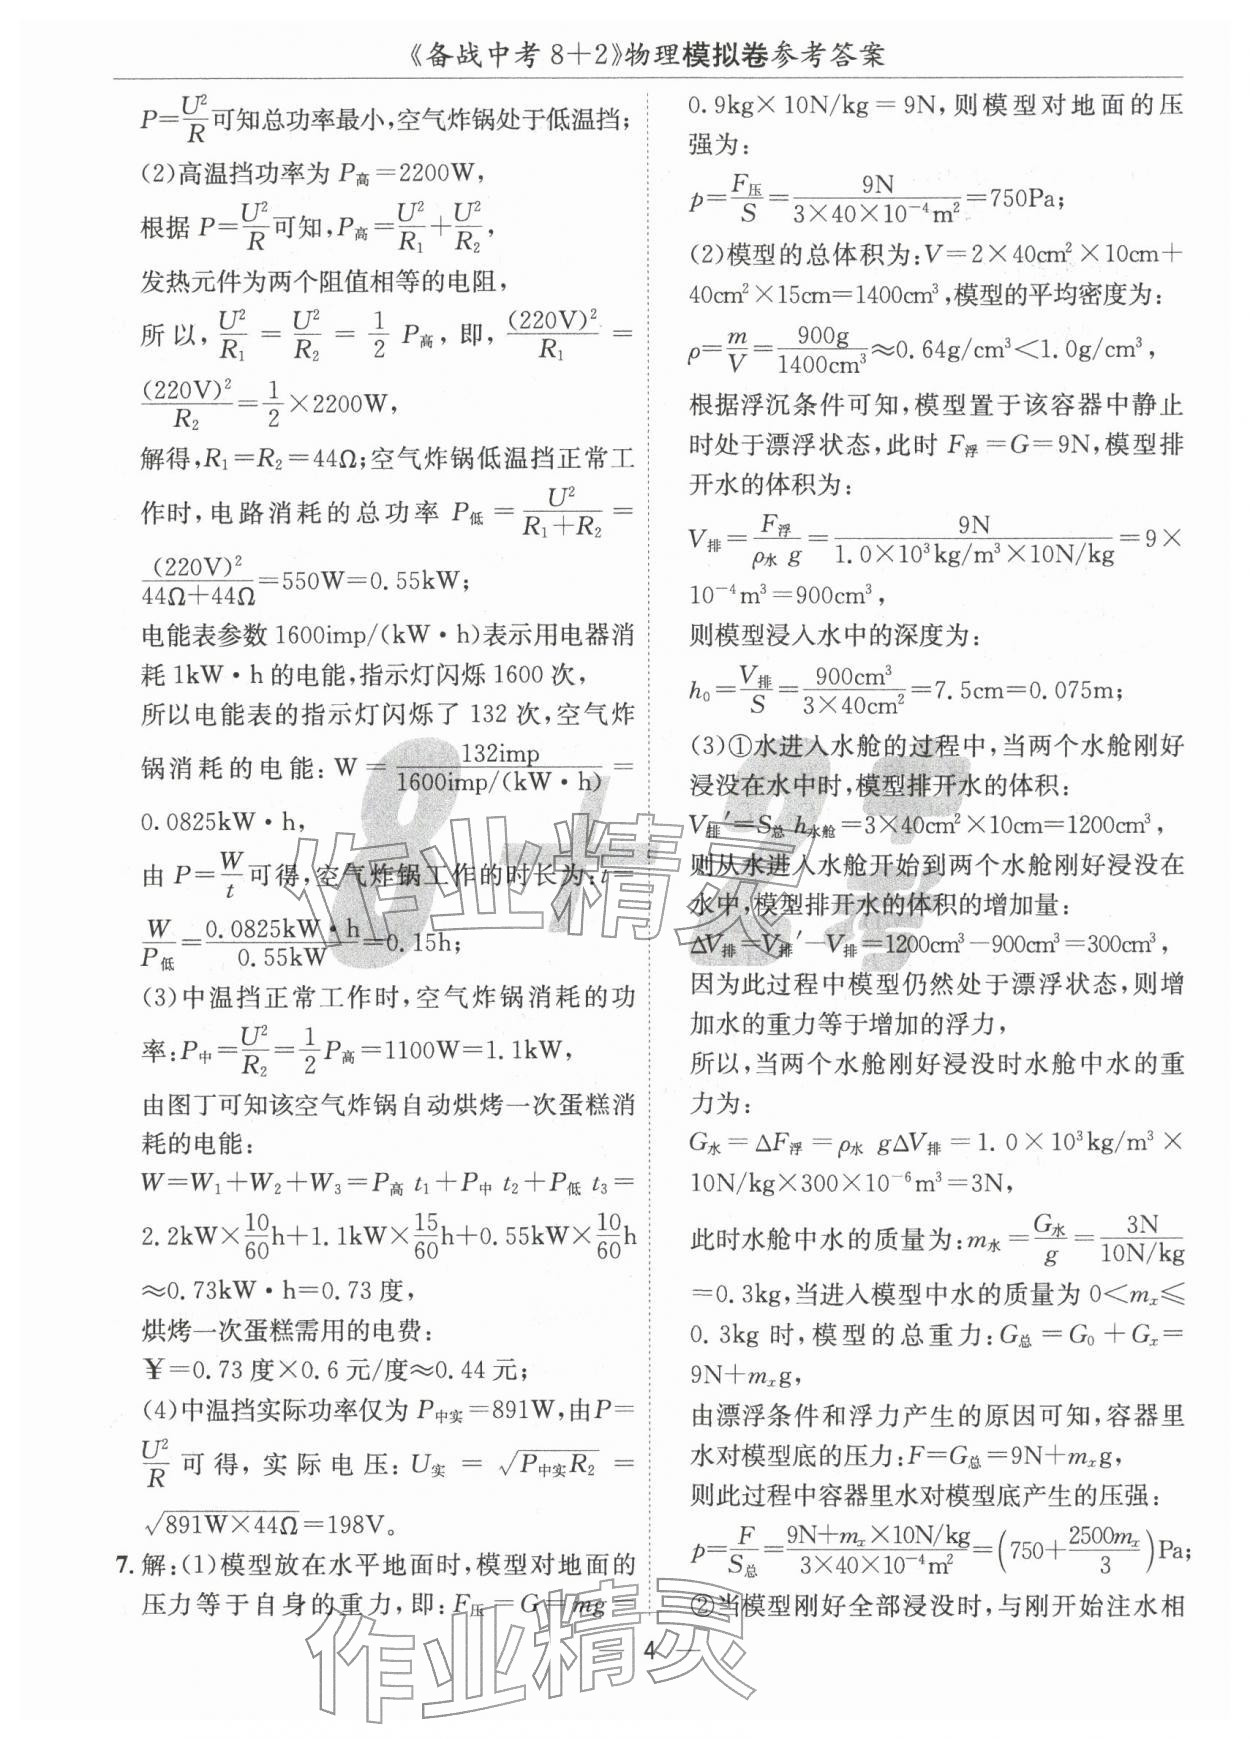 《备战中考 8+2》物理模拟卷参考答案
P=U²/R可知总功率最小,空气炸锅处于低温挡;
(2)高温挡功率为 P高=2200W,
根据 P=U²/R可知,P高=U²/R₁+U²/R₂,
发热元件为两个阻值相等的电阻,
所以, U²/R₁ = U²/R₂ = 1/2 P高, 即, (220V)²/R₁ =
(220V)²/R₂=1/2×2200W,
解得,R₁=R₂=44Ω;空气炸锅低温挡正常工
作时,电路消耗的总功率 P低 = U²/(R₁+R₂) =
(220V)²/(44Ω+44Ω)=550W=0.55kW;
电能表参数1600imp/(kW·h)表示用电器消
耗1kW·h的电能,指示灯闪烁1600次,
所以电能表的指示灯闪烁了132次,空气炸
锅消耗的电能: W = 132imp/(1600imp/(kW·h)) =
0.0825kW·h,
由 P=W/t可得,空气炸锅工作的时长为:t=
W/P低=0.0825kW·h/0.55kW=0.15h;
(3)中温挡正常工作时,空气炸锅消耗的功
率:P中=U²/R₂=1/2P高=1100W=1.1kW,
由图丁可知该空气炸锅自动烘烤一次蛋糕消
耗的电能:
W=W₁+W₂+W₃=P高 t₁+P中 t₂+P低 t₃=
2.2kW×10/60h+1.1kW×15/60h+0.55kW×10/60h
≈0.73kW·h=0.73度,
烘烤一次蛋糕需用的电费:
¥=0.73度×0.6元/度≈0.44元;
(4)中温挡实际功率仅为 P中实=891W,由P=
U²/R 可得, 实际电压: U实 = √(P中实R₂) =
√(891W×44Ω)=198V。
7. 解:(1)模型放在水平地面时,模型对地面的
压力等于自身的重力,即:F压=G=mg=
0.9kg×10N/kg=9N,则模型对地面的压
强为:
p=F压/S=9N/(3×40×10⁻⁴m²)=750Pa;
(2)模型的总体积为:V=2×40cm²×10cm+
40cm²×15cm=1400cm³,模型的平均密度为:
ρ=m/V=900g/1400cm³≈0.64g/cm³<1.0g/cm³,
根据浮沉条件可知,模型置于该容器中静止
时处于漂浮状态,此时 F浮=G=9N,模型排
开水的体积为:
V排=F浮/(ρ水 g)=9N/(1.0×10³kg/m³×10N/kg)=9×
10⁻⁴m³=900cm³,
则模型浸入水中的深度为:
h₀=V排/S=900cm³/(3×40cm²)=7.5cm=0.075m;
(3)①水进入水舱的过程中,当两个水舱刚好
浸没在水中时,模型排开水的体积:
V排′=S总 h水舱=3×40cm²×10cm=1200cm³,
则从水进入水舱开始到两个水舱刚好浸没在
水中,模型排开水的体积的增加量:
ΔV排=V排′-V排=1200cm³-900cm³=300cm³,
因为此过程中模型仍然处于漂浮状态,则增
加水的重力等于增加的浮力,
所以,当两个水舱刚好浸没时水舱中水的重
力为:
G水=ΔF浮=ρ水 gΔV排=1.0×10³kg/m³×
10N/kg×300×10⁻⁶m³=3N,
此时水舱中水的质量为:m水=G水/g=3N/(10N/kg)
=0.3kg,当进入模型中水的质量为 0<mₓ≤
0.3kg时,模型的总重力:G总=G₀+Gₓ=
9N+mₓg,
由漂浮条件和浮力产生的原因可知,容器里
水对模型底的压力:F=G总=9N+mₓg,
则此过程中容器里水对模型底产生的压强:
p=F/S总=(9N+mₓ×10N/kg)/(3×40×10⁻⁴m²)=(750+2500mₓ/3)Pa;
②当模型刚好全部浸没时,与刚开始注水相
— 4 —
8+2中考
作业精灵
作业精灵